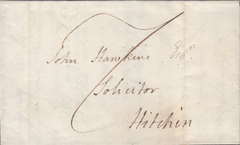 John Hawkins Esqr.
Solicitor
Hitchin